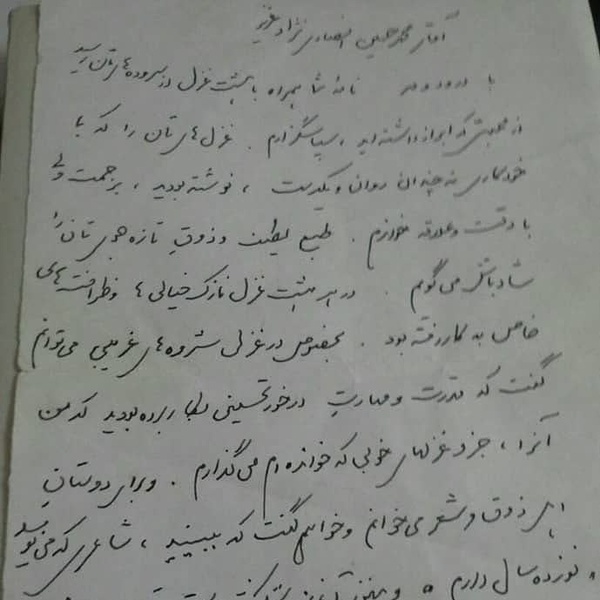 آقای محمدحسین انصاری نژاد عزیز
با درود و مهر نامهٔ شما همراه با هشت غزل از سروده‌های تان رسید
از محبتی که ابراز داشته‌اید، سپاسگزارم. غزل‌های تان را که با
خودکاری نه چندان روان و یکدست، نوشته بودید، به زحمت ولی
با دقت و علاقه خواندم. طبع لطیف و ذوقِ تازه جوی تان را
شادباش می‌گویم. در هر هشت غزل نازک خیالی‌ها و ظرافت‌های
خاصی به کار رفته بود. بخصوص در غزل شروه‌های غریبی می‌توانم
گفت که قدرت و مهارتِ درخور تحسینی بکار برده بودید که من
آنرا، جزو غزلهای خوبی که خوانده‌ام می‌گذارم. و برای دوستانِ
اهل ذوق و شعر می‌خوانم و خواهم گفت که ببینید، شاعری که می‌نویسد
نوزده سال دارم